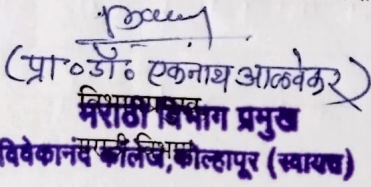 (प्रा०डॉ० एकनाथ आळवेकर)
मराठी विभाग प्रमुख
विवेकानंद कॉलेज, कोल्हापूर (स्वायत्त)